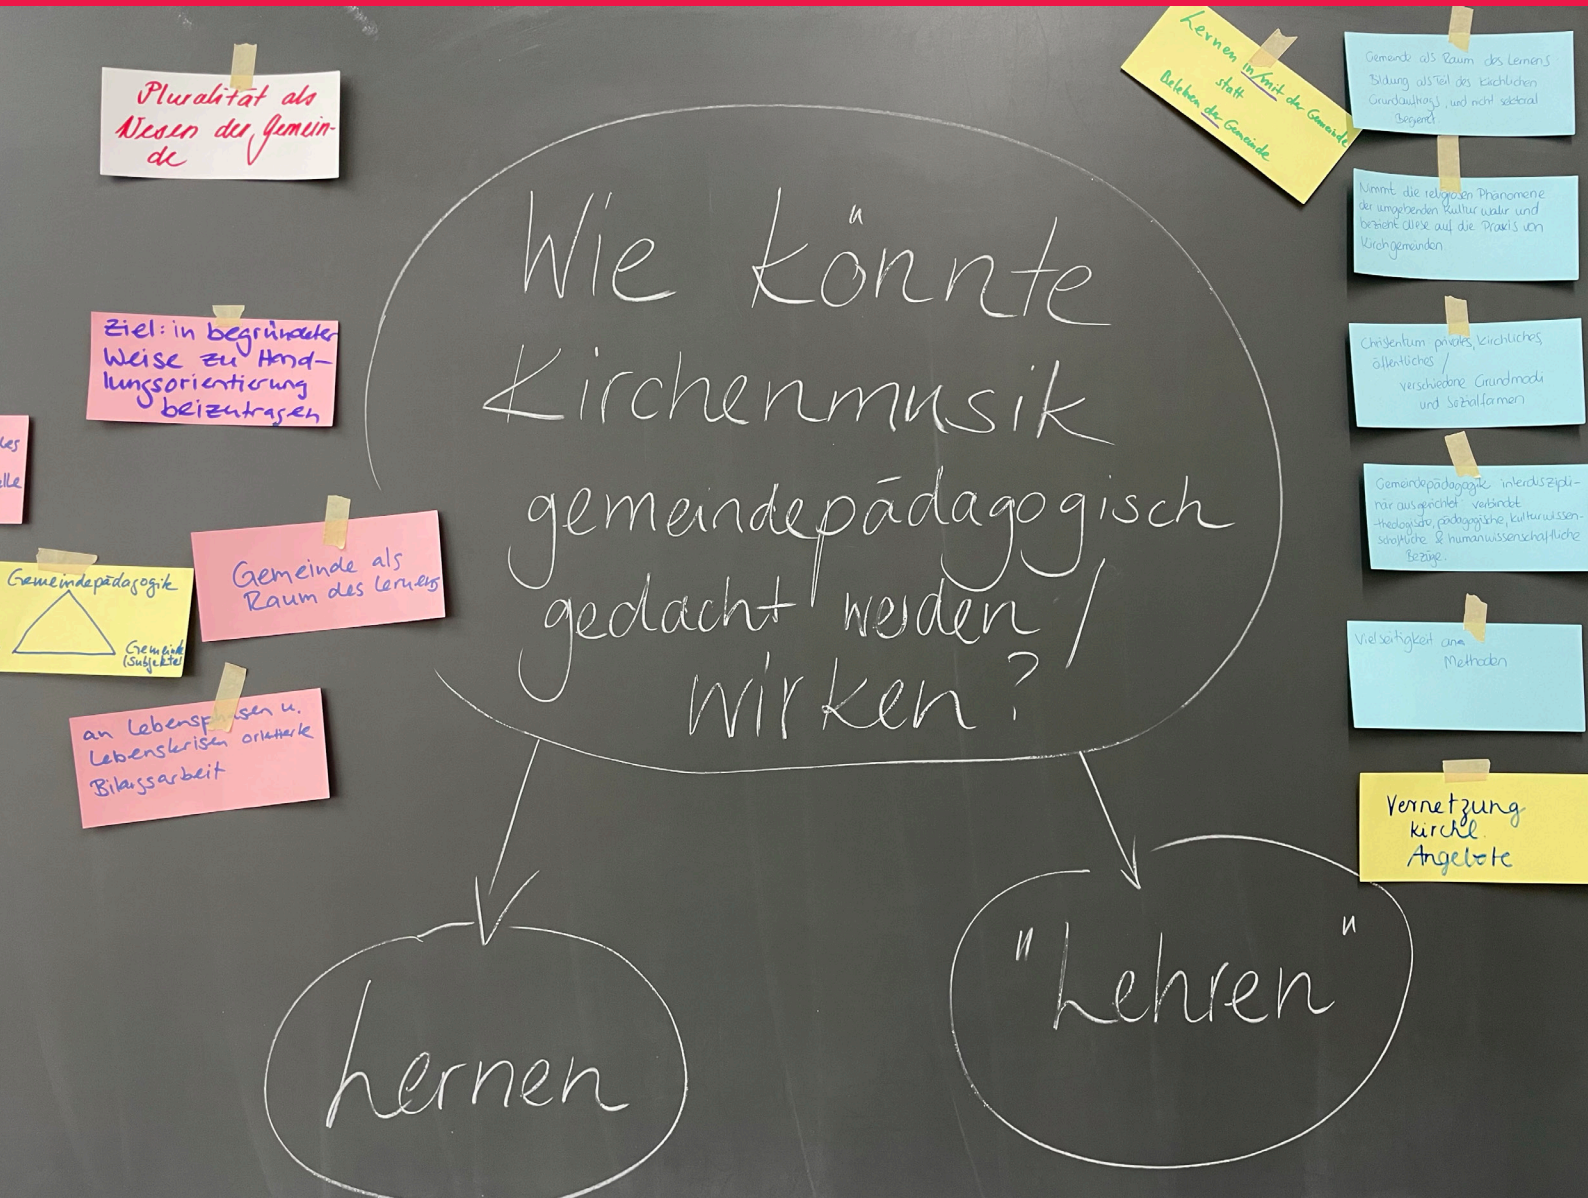 Pluralität als
Wesen der Gemein-
de
Ziel: in begründeter
Weise zu Hand-
lungsorientierung
beizutragen
Gemeindepädagogik
Gemeinde
(Subjekte)
Gemeinde als
Raum des Lernens
an Lebensphasen u.
Lebenskrisen orientierte
Bildungsarbeit
Wie könnte
Kirchenmusik
gemeindepädagogisch
gedacht werden /
wirken?
Lernen
"Lehren"
Lernen in/mit der Gemeinde
statt
Belehren der Gemeinde
Gemeinde als Raum des Lernens
Bildung als Teil des kirchlichen
Grundauftrags, und nicht sektoral
Nimmt die religiösen Phänomene
der umgebenden Kultur wahr und
bezieht diese auf die Praxis von
Kirchgemeinden.
Christentum privates, kirchliches,
öffentliches /
verschiedene Grundmodi
und Sozialformen
Gemeindepädagogik interdiszipli-
när ausgerichtet verbindet
theologische, pädagogische, kulturwissen-
schaftliche & humanwissenschaftliche
Bezüge.
Vielseitigkeit
Methoden
Vernetzung
kirchl.
Angebote